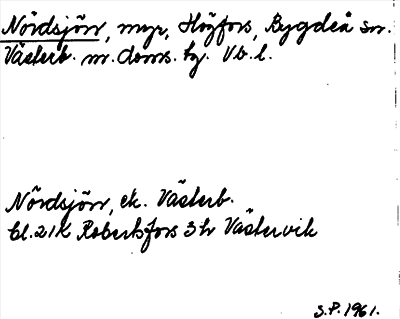 Nördsjörr, myr, Högfors, Bygdeå sn.
Västerb. n. doms. hg. Vb.l.
Nördsjörr, ek. Västerb.
bl. 21K Robertsfors 3 h Västervik
S.P. 1961.